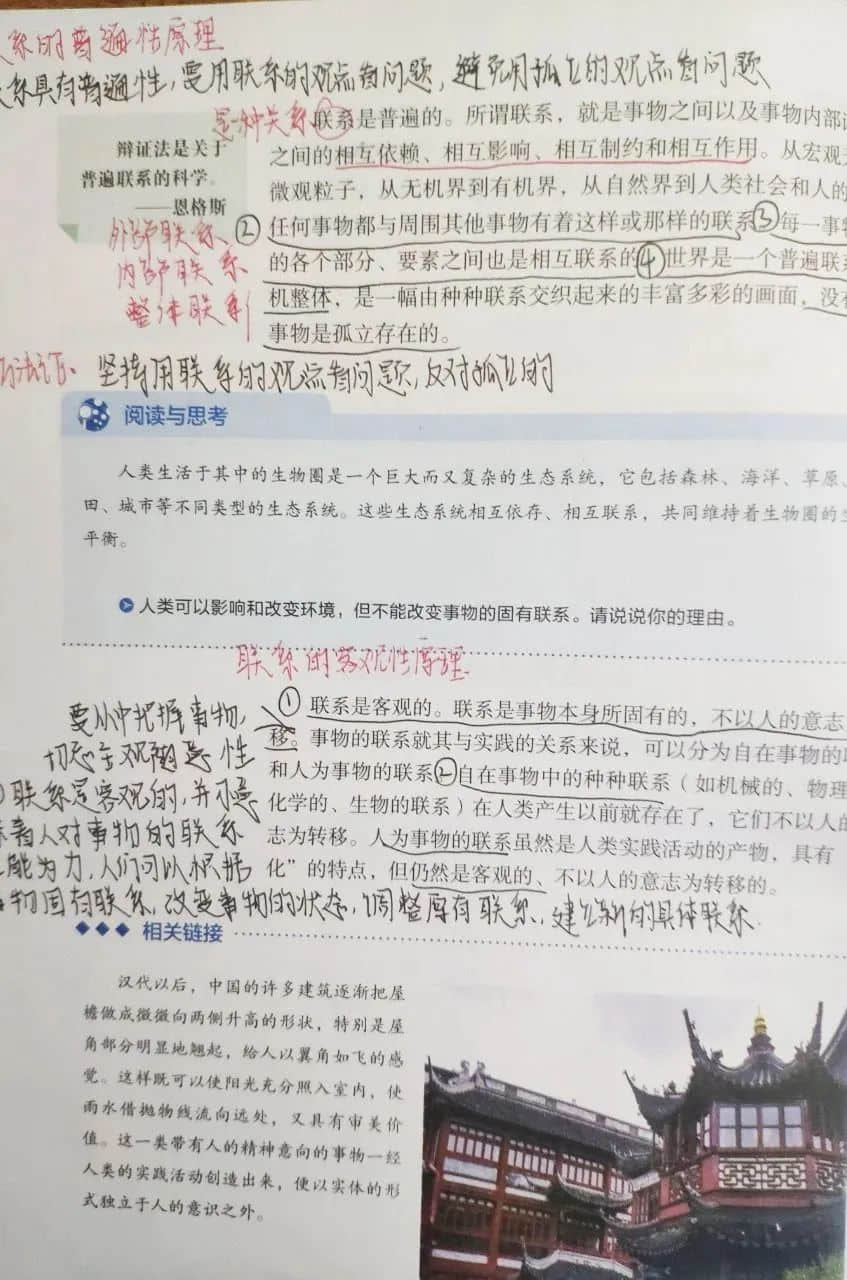 系的普遍性原理
系具有普遍性，要用联系的观点看问题，避免用孤立的观点看问题
是一种关系①联系是普遍的。所谓联系，就是事物之间以及事物内部
之间的相互依赖、相互影响、相互制约和相互作用。从宏观
微观粒子，从无机界到有机界，从自然界到人类社会和人的
②任何事物都与周围其他事物有着这样或那样的联系③每一事
的各个部分、要素之间也是相互联系的④世界是一个普遍联
机整体，是一幅由种种联系交织起来的丰富多彩的画面，没
事物是孤立存在的。
辩证法是关于
普遍联系的科学。
——恩格斯
外部联系、
内部联系
整体联系
方法论： 坚持用联系的观点看问题，反对孤立的
阅读与思考
人类生活于其中的生物圈是一个巨大而又复杂的生态系统，它包括森林、海洋、草原、
田、城市等不同类型的生态系统。这些生态系统相互依存、相互联系，共同维持着生物圈的
平衡。
人类可以影响和改变环境，但不能改变事物的固有联系。请说说你的理由。
联系的客观性原理
①联系是客观的。联系是事物本身所固有的，不以人的意志
移。事物的联系就其与实践的关系来说，可以分为自在事物的
和人为事物的联系②自在事物中的种种联系（如机械的、物理
化学的、生物的联系）在人类产生以前就存在了，它们不以人的
志为转移。人为事物的联系虽然是人类实践活动的产物，具有
化”的特点，但仍然是客观的、不以人的意志为转移的。
要从中把握事物，
切忌主观随意性
联系是客观的，并不意
味着人对事物的联系
无能为力，人们可以根据
事物固有联系，改变事物的状态，调整原有联系，建立新的具体联系
相关链接
汉代以后，中国的许多建筑逐渐把屋
檐做成微微向两侧升高的形状，特别是屋
角部分明显地翘起，给人以翼角如飞的感
觉。这样既可以使阳光充分照入室内，使
雨水借抛物线流向远处，又具有审美价
值。这一类带有人的精神意向的事物一经
人类的实践活动创造出来，便以实体的形
式独立于人的意识之外。